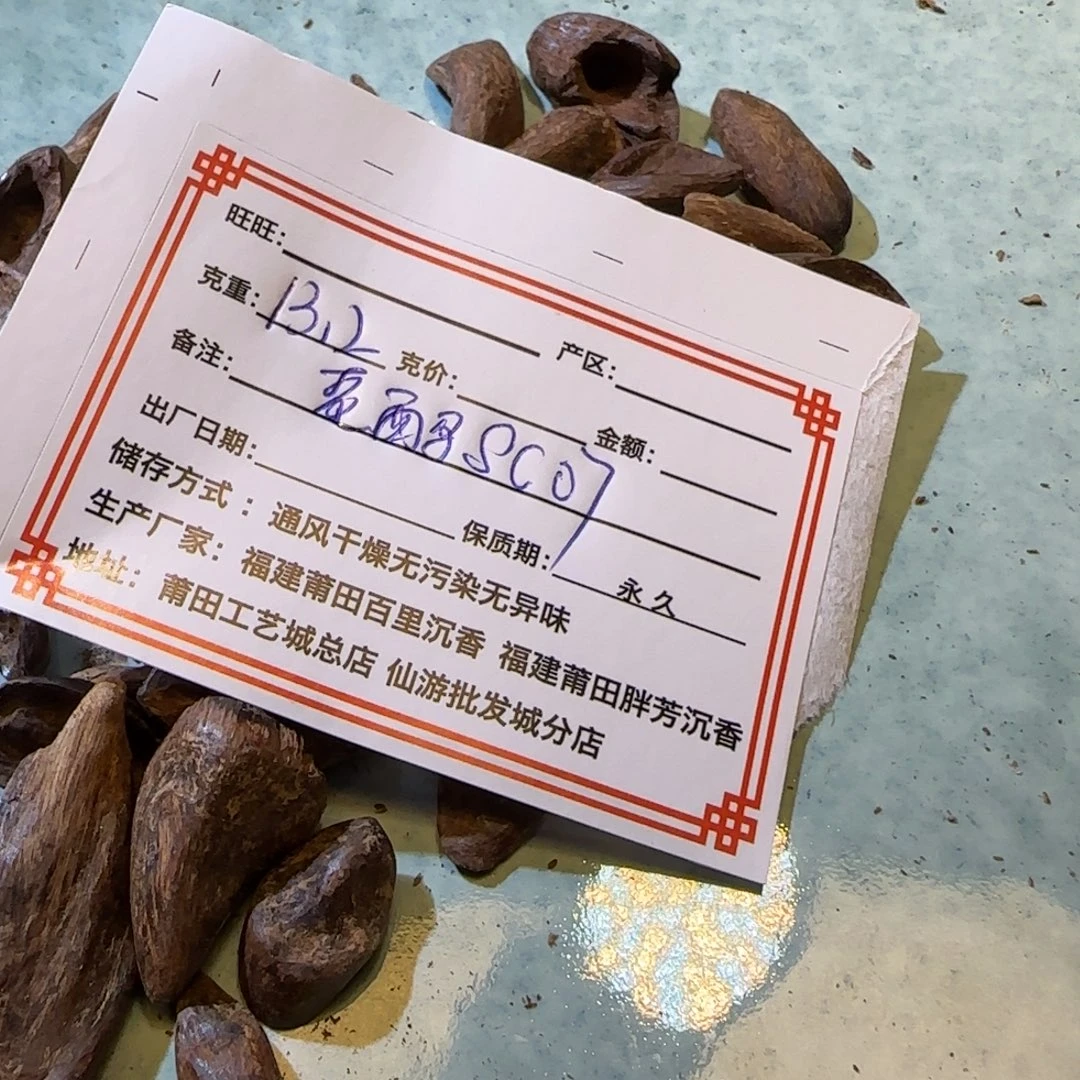 旺旺: 产区:
克重: 13.2 克价: 金额:
备注: SC07
出厂日期: 保质期: 永久
储存方式：通风干燥无污染无异味
生产厂家：福建莆田百里沉香 福建莆田胖芳沉香
地址：莆田工艺城总店 仙游批发城分店